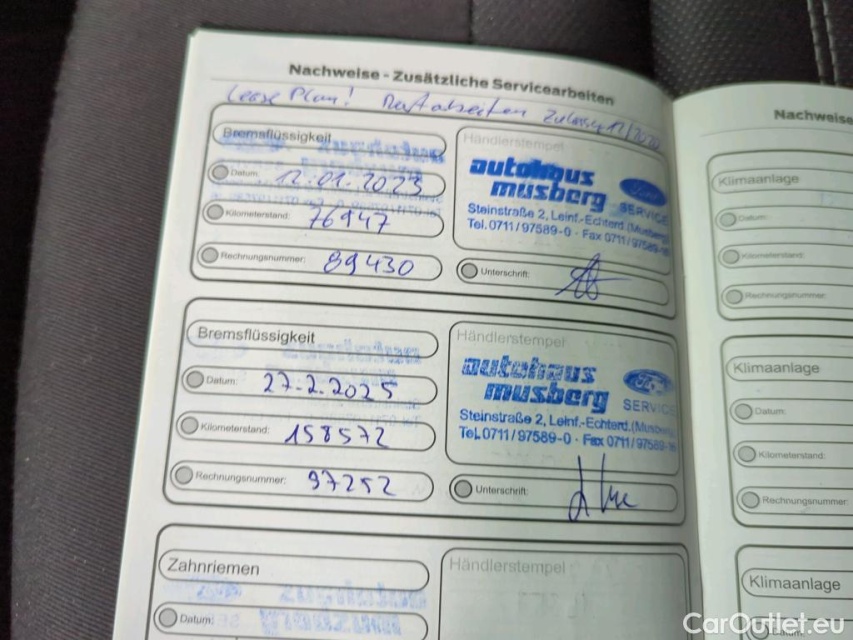 Nachweise - Zusätzliche Servicearbeiten
Lease Plan! Zulassg 12/2020
Bremsflüssigkeit
Datum: 12.01.2023
Kilometerstand: 76947
Rechnungsnummer: 89430
Händlerstempel
autohaus
musberg
Ford
SERVICE
Steinstraße 2, Leinf.-Echterd. (Musberg)
Tel. 0711/97589-0 · Fax 0711/97589-
Unterschrift:
Bremsflüssigkeit
Datum: 27.2.2025
Kilometerstand: 158572
Rechnungsnummer: 97252
Händlerstempel
autohaus
musberg
Ford
SERVICE
Steinstraße 2, Leinf.-Echterd. (Musberg)
Tel. 0711/97589-0 · Fax 0711/97589-
Unterschrift:
Zahnriemen
Datum:
Händlerstempel
Nachweise
Klimaanlage
Datum:
Kilometerstand:
Rechnungsnummer:
Klimaanlage
Datum:
Kilometerstand:
Rechnungsnummer:
Klimaanlage
Datum:
CarOutlet.eu